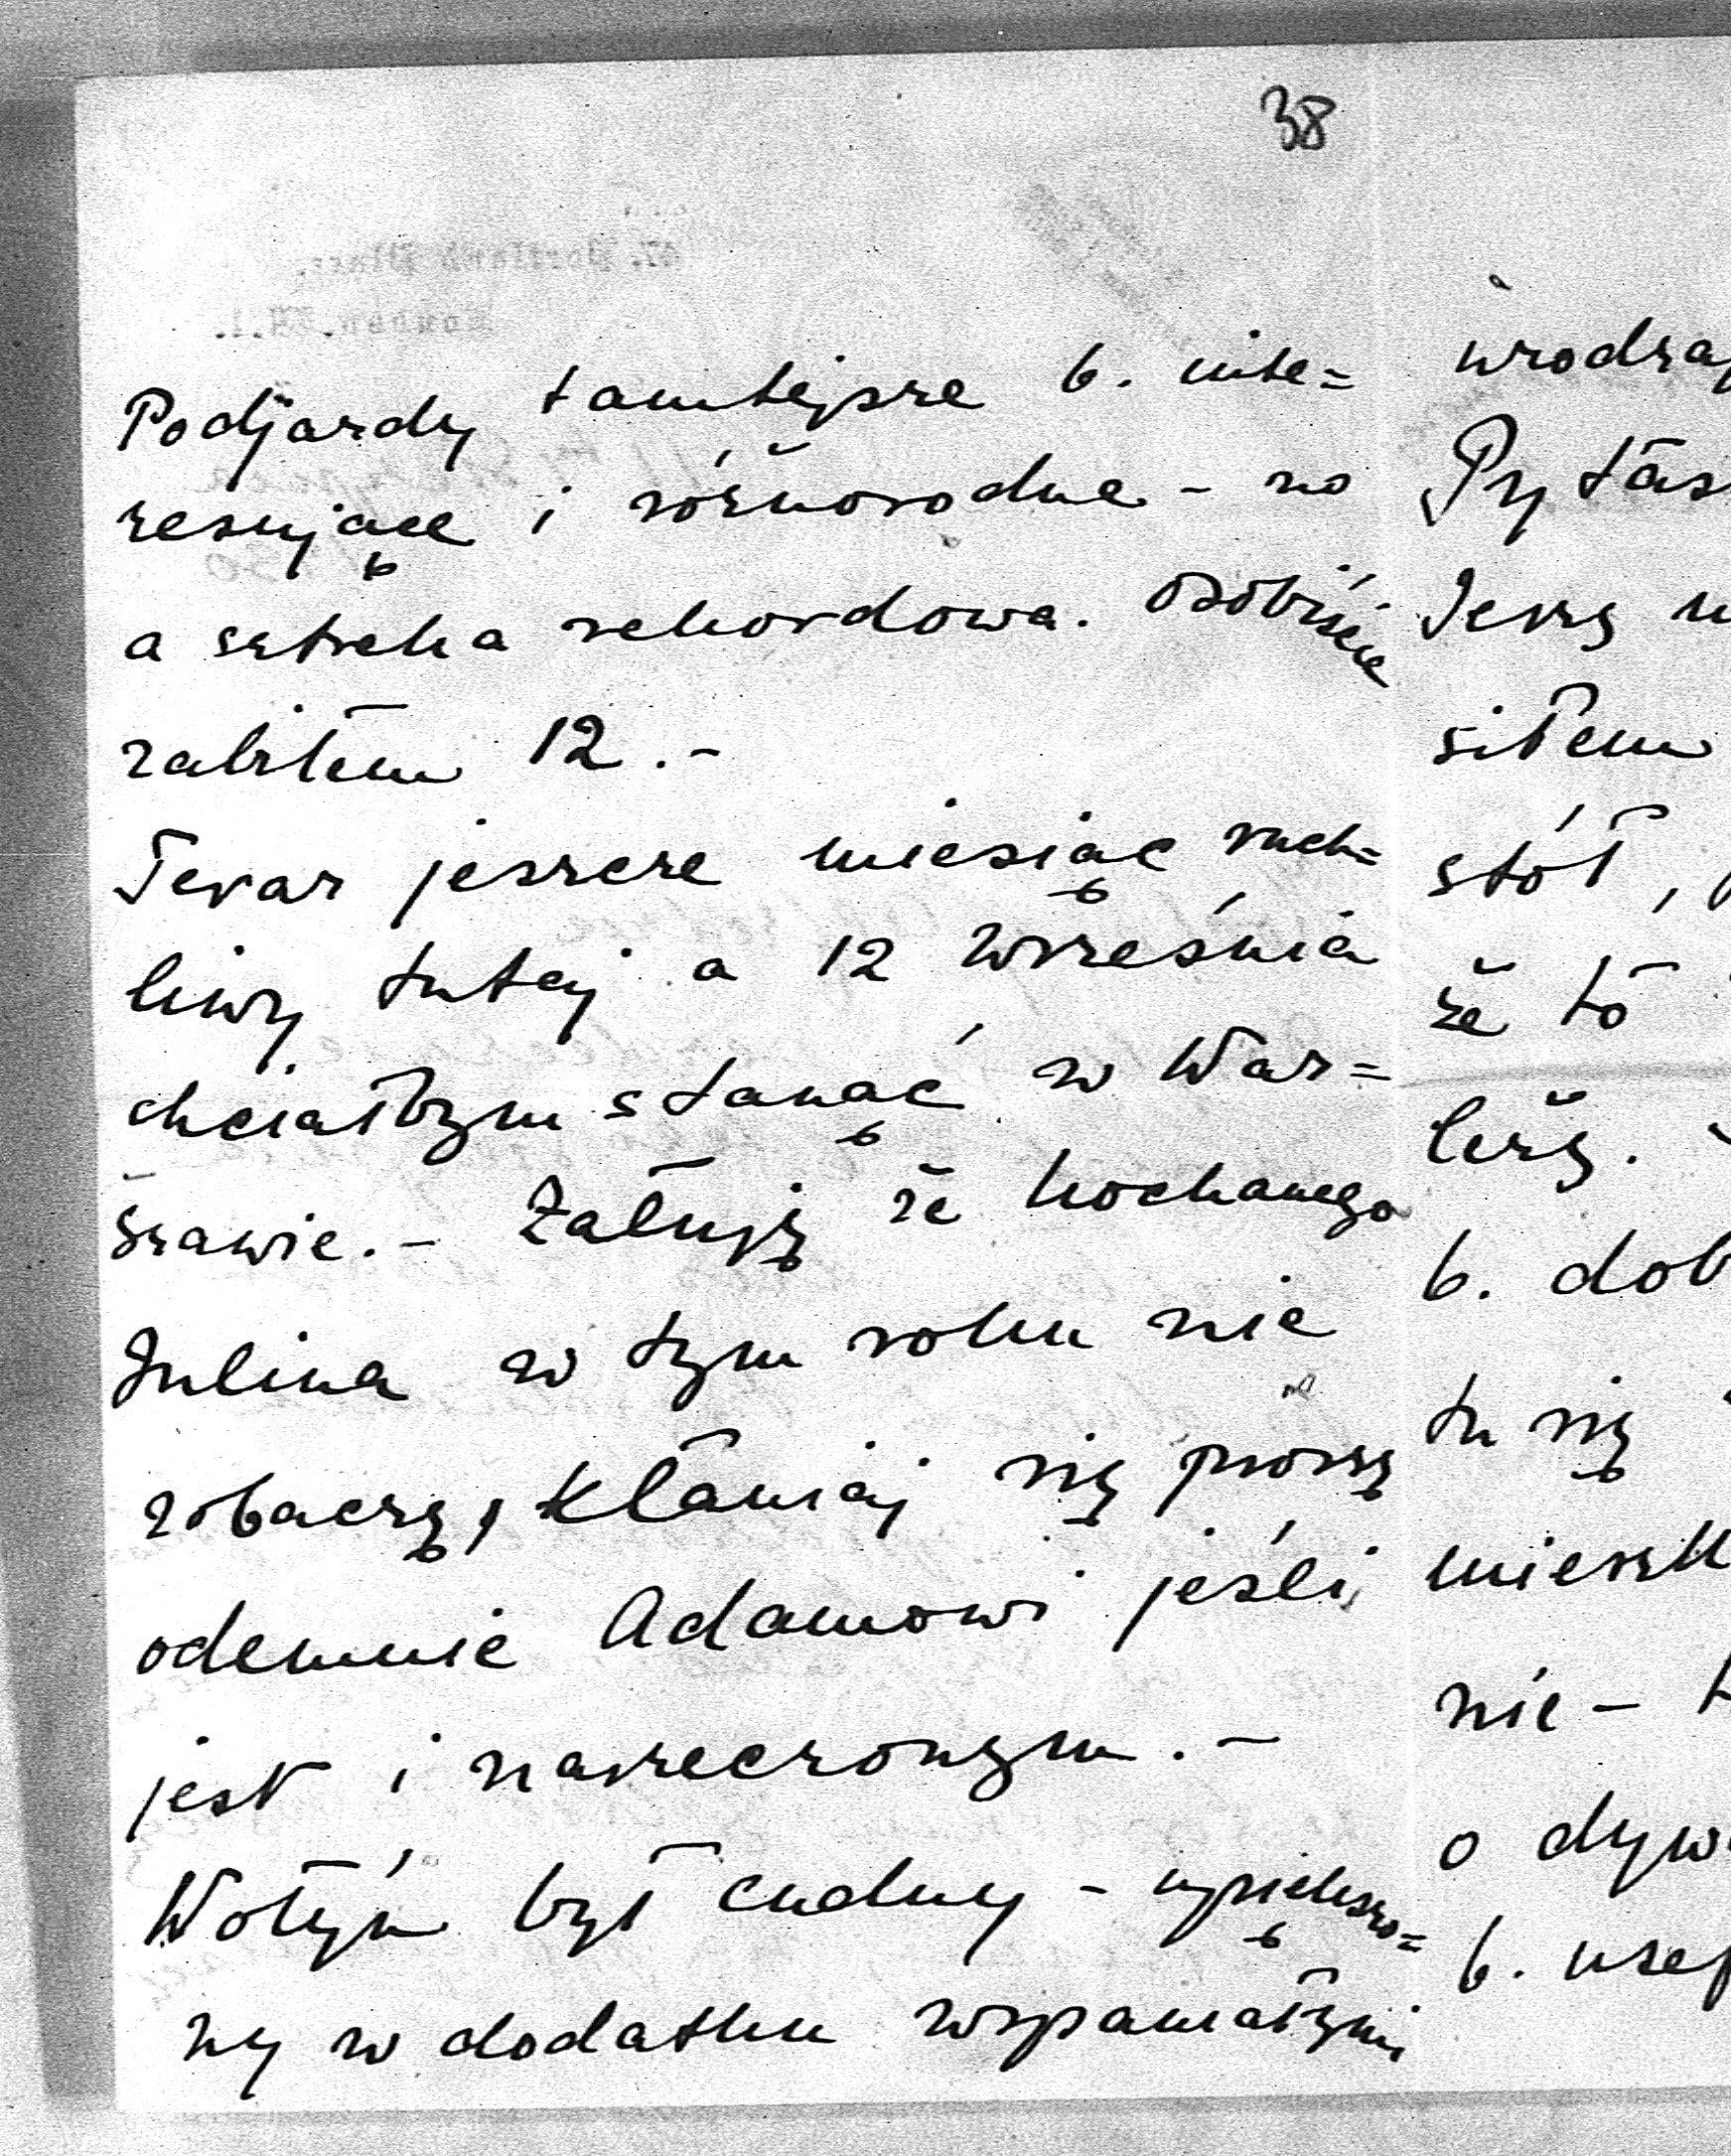 38
Podjazdy tamtejsze b. inte=
resujące i różnorodne - no
a sztreka rekordowa. Osobiście
zabiłem 12.-
Teraz jeszcze miesiąc ruch=
liwy tutaj a 12 września
chciałbym stanąć w War=
szawie.- Żałuję że kochanego
Julina w tym roku nie
zobaczę, kłaniaj się proszę
odemnie Adamowi jeśli
jest i narzeczonym.-
Wołyń był cudny - upiększo=
ny w dodatku wspaniałymi
urodza
Pytas
Jerzy
siłem
stół,
że to
leży.
b. dob
tu się
mieszk
nie -
o dyw
b.